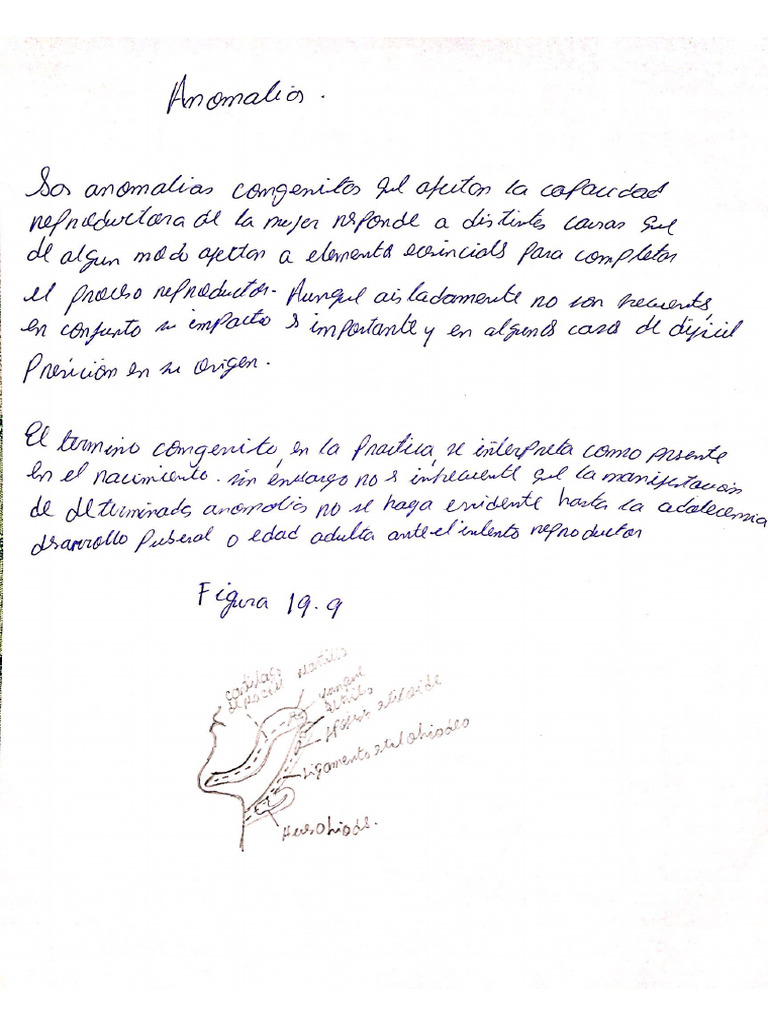 Anomalias.
Las anomalias congenitas qel afectan la capacidad
reproductora de la mujer responde a distintas causas que
de algun modo afectan a elementos esenciales para completar
el proceso reproductor. Aunque aisladamente no son frecuents,
en conjunto su impacto s importante y en algunos casos de dificil
Presicion en su origen.
El termino congenito, en la practica, se interpreta como presente
en el nacimiento. sin enbargo no s infrecuente qel la manifestacion
de determinadas anomalias no se haga evidente hasta la adolecensia
dsarrollo Puberal o edad adulta ante el intento reproductor
Figura 19.9
cartilago martillo
de meckel yunque
estribo
apofisis stiloide
Ligamento stilohiodeo
Hueso hiods.